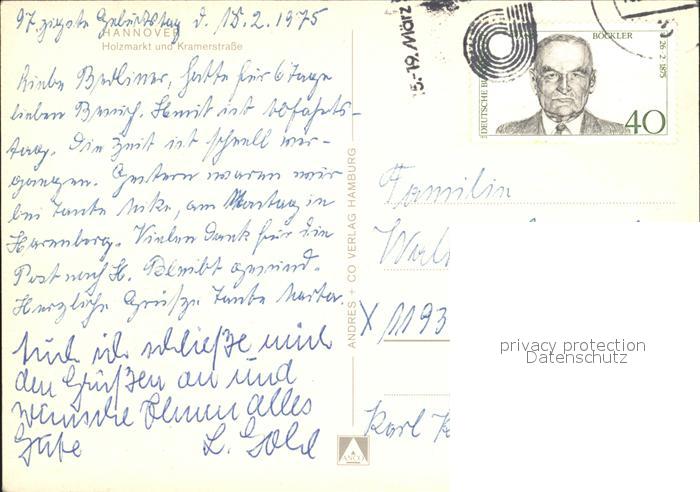 97. zigste Geburtstag d. 18.2.1975
HANNOVER
Holzmarkt und Kramerstraße
Liebe Berliner, hatte für 6 Tage
lieben Besuch. Heute ist Abfahrts-
tag. Die Zeit ist schnell ver-
gangen. Gestern waren wir
bei Tante Mike, am Montag in
Harenberg. Vielen Dank für die
Post nach H. Bleibt gesund.
Herzliche Grüße Tante Marta.
Auch ich schließe mich
den Grüßen an und
wünsche Ihnen alles
Gute L. Gold
ANDRES + CO VERLAG HAMBURG
ANCO
15.-19. März
DEUTSCHE BU
BÖCKLER
26·2·1875
40
Familie
X 1193
Karl K
privacy protection
Datenschutz